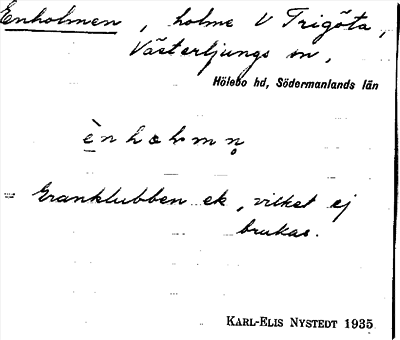 Enholmen, holme V Trigöta,
Västerljungs sn,
Hölebo hd, Södermanlands län
ènhɷlmn̥
= Granklubben ek, vilket ej
brukas.
KARL-ELIS NYSTEDT 1935